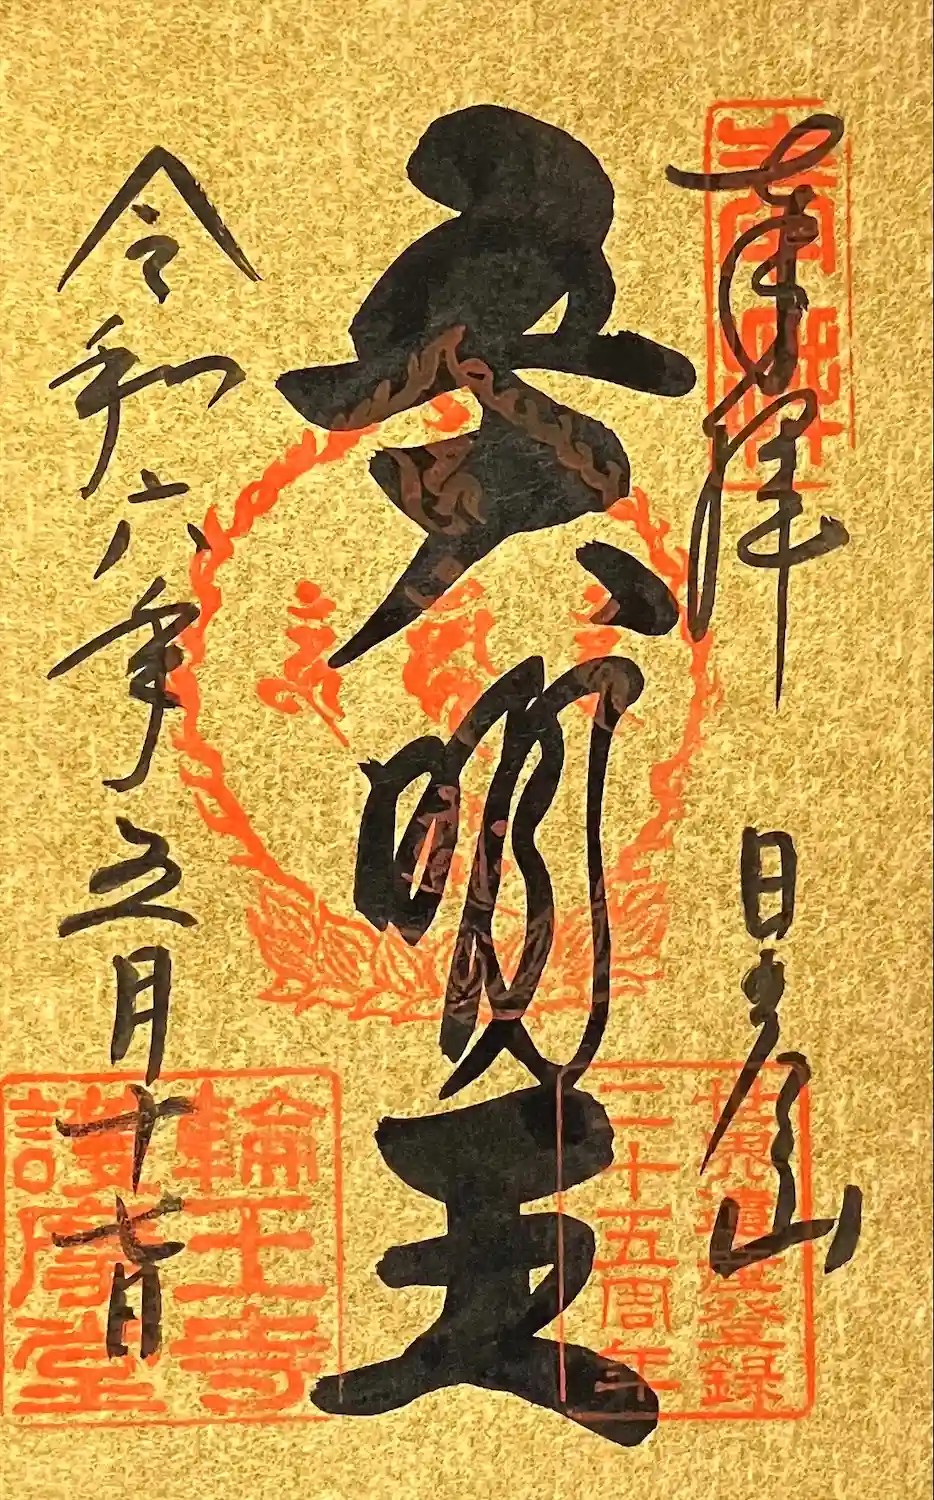 奉拝
日光山
世界遺産登録
二十五周年
五大明王
令和六年五月十七日
輪王寺
護摩堂